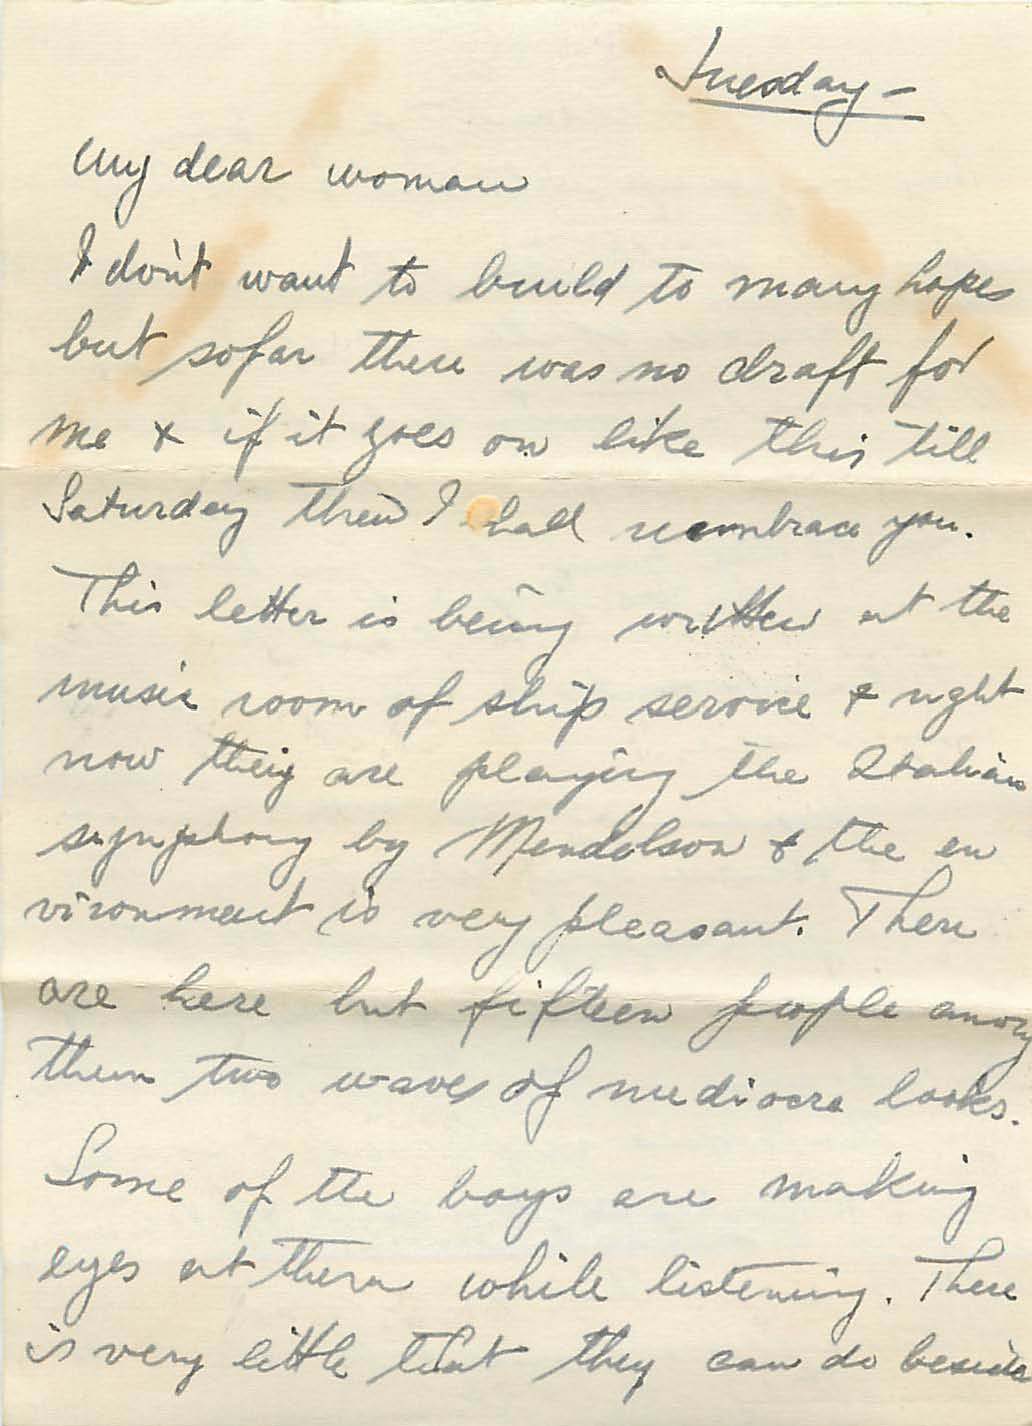 Tuesday –
My dear woman
I don't want to build to many hopes
but sofar there was no draft for
me & if it goes on like this till
Saturday then I shall reembrace you.
This letter is being written at the
music room of ship service & right
now they are playing the Italian
symphony by Mendolson & the en
vironment is very pleasant. There
are here but fifteen people among
them two waves of mediocre looks.
Some of the boys are making
eyes at them while listening. There
is very little that they can do beside